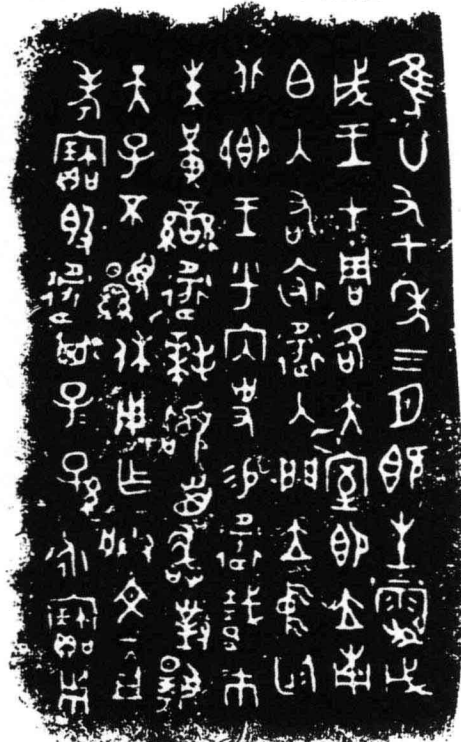 隹廿又七年三月既生霸戊
戌王才周各大室即立南
白入右裘衛入門立中廷
北鄉王乎內史易衛市
朱黃䜌衛拜𩒨首敢對揚
天子不顯休用乍朕文且
考寶𣪘衛其子子孫孫永寶用